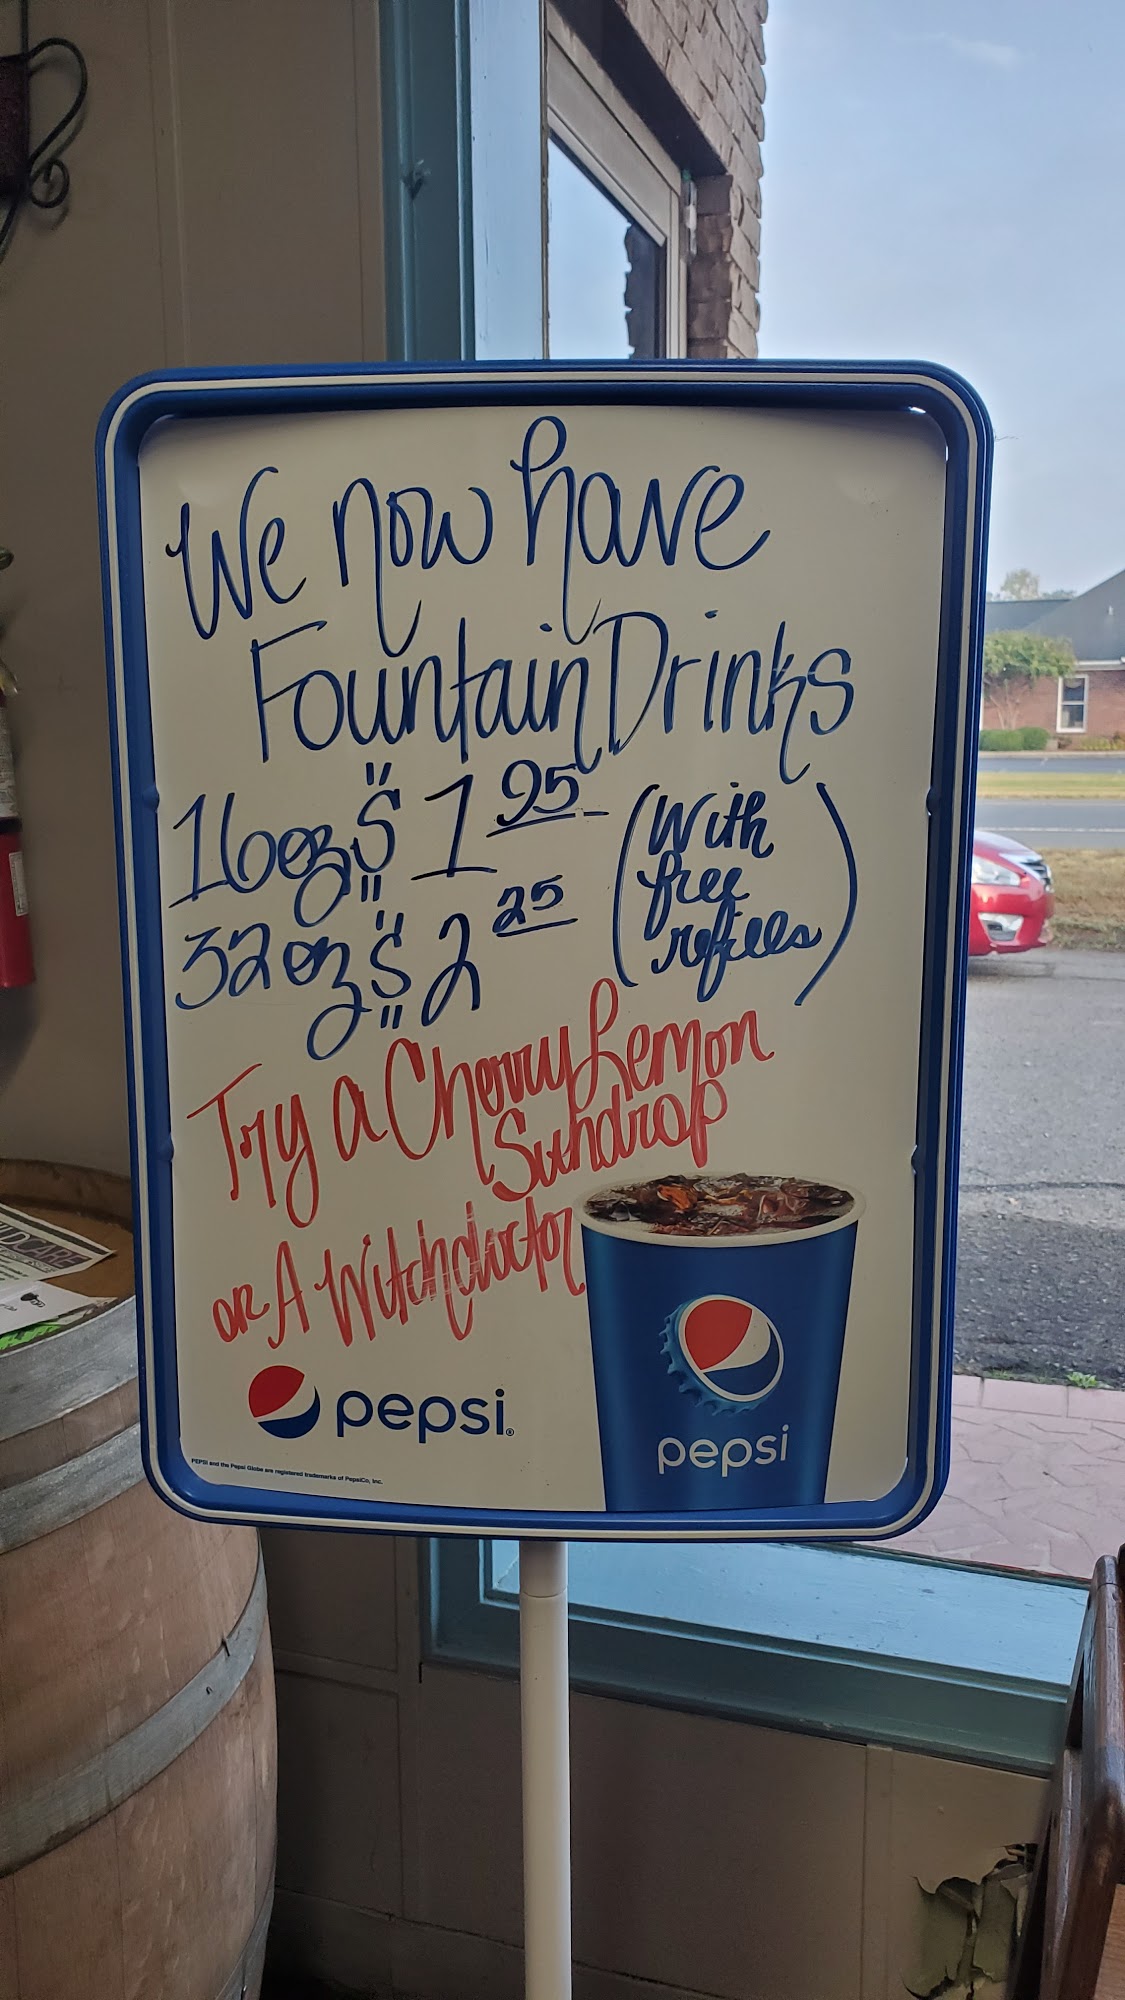 We now have
Fountain Drinks
16oz $1.95
32oz $2.25
(With
free
refills)
Try a Cherry Lemon
Sundrop
or A Witchdoctor
pepsi
pepsi
PEPSI and the Pepsi Globe are registered trademarks of PepsiCo, Inc.
CARE